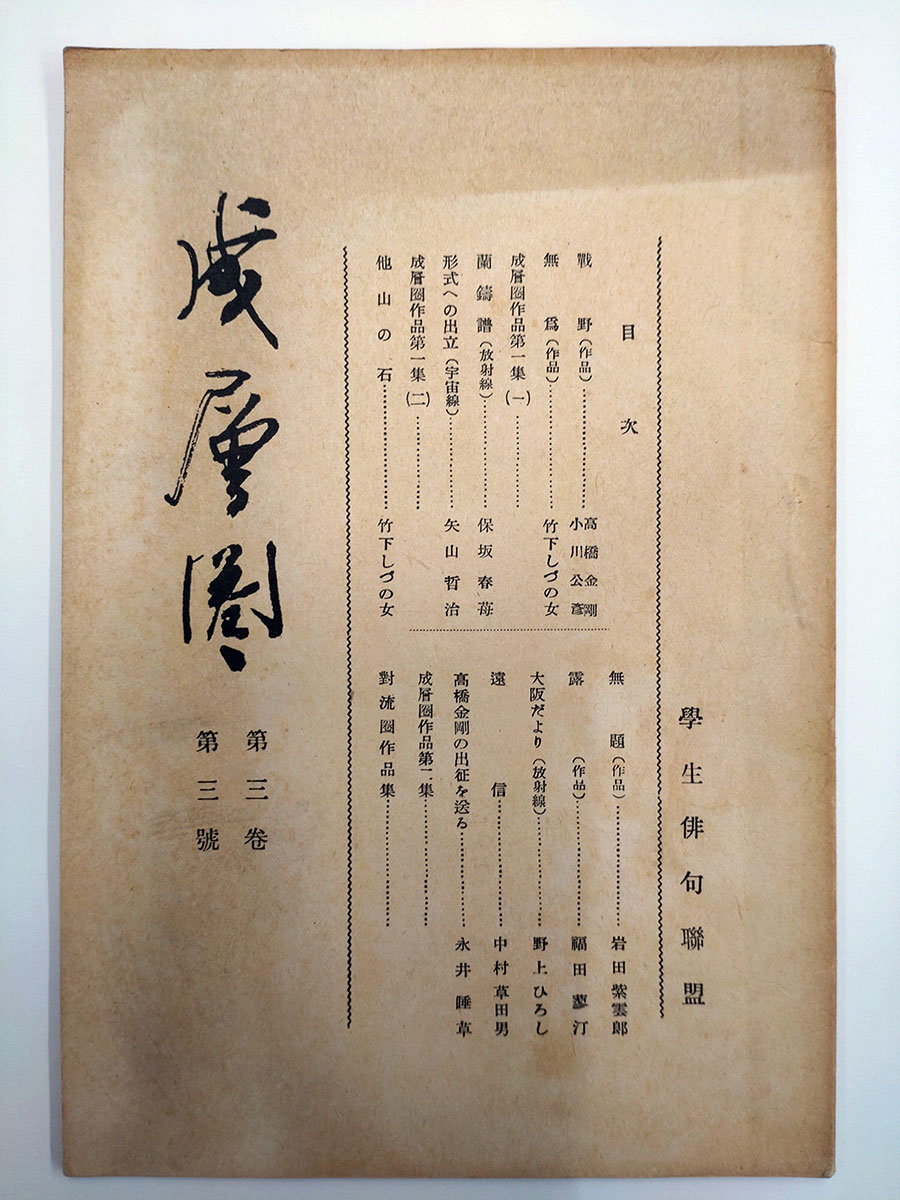 學生俳句聯盟
目次
戰野(作品)……………高橋金剛
小川公彥
無爲(作品)……………竹下しづの女
成層圏作品第一集(一)……………
蘭鑄譜(放射線)……………保坂春苺
形式への出立(宇宙線)……………矢山哲治
成層圏作品第一集(二)……………
他山の石……………竹下しづの女
無題(作品)……………岩田紫雲郎
露(作品)……………福田蓼汀
大阪だより(放射線)……………野上ひろし
遠信……………中村草田男
高橋金剛の出征を送る……………永井睡草
成層圏作品第二集……………
對流圏作品集……………
成層圏
第三卷
第三號